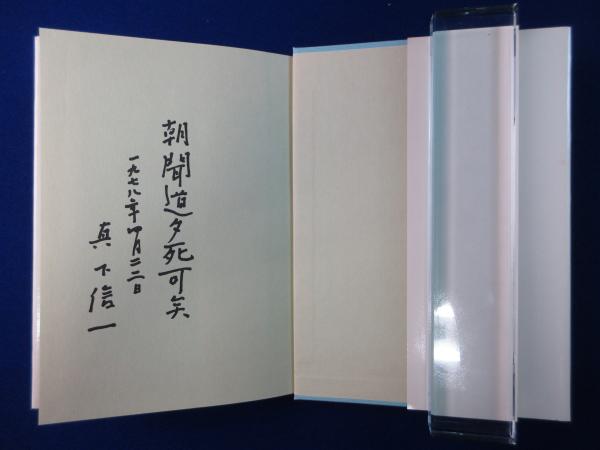 朝聞道夕死可矣
一九七八年四月二二日
真下信一